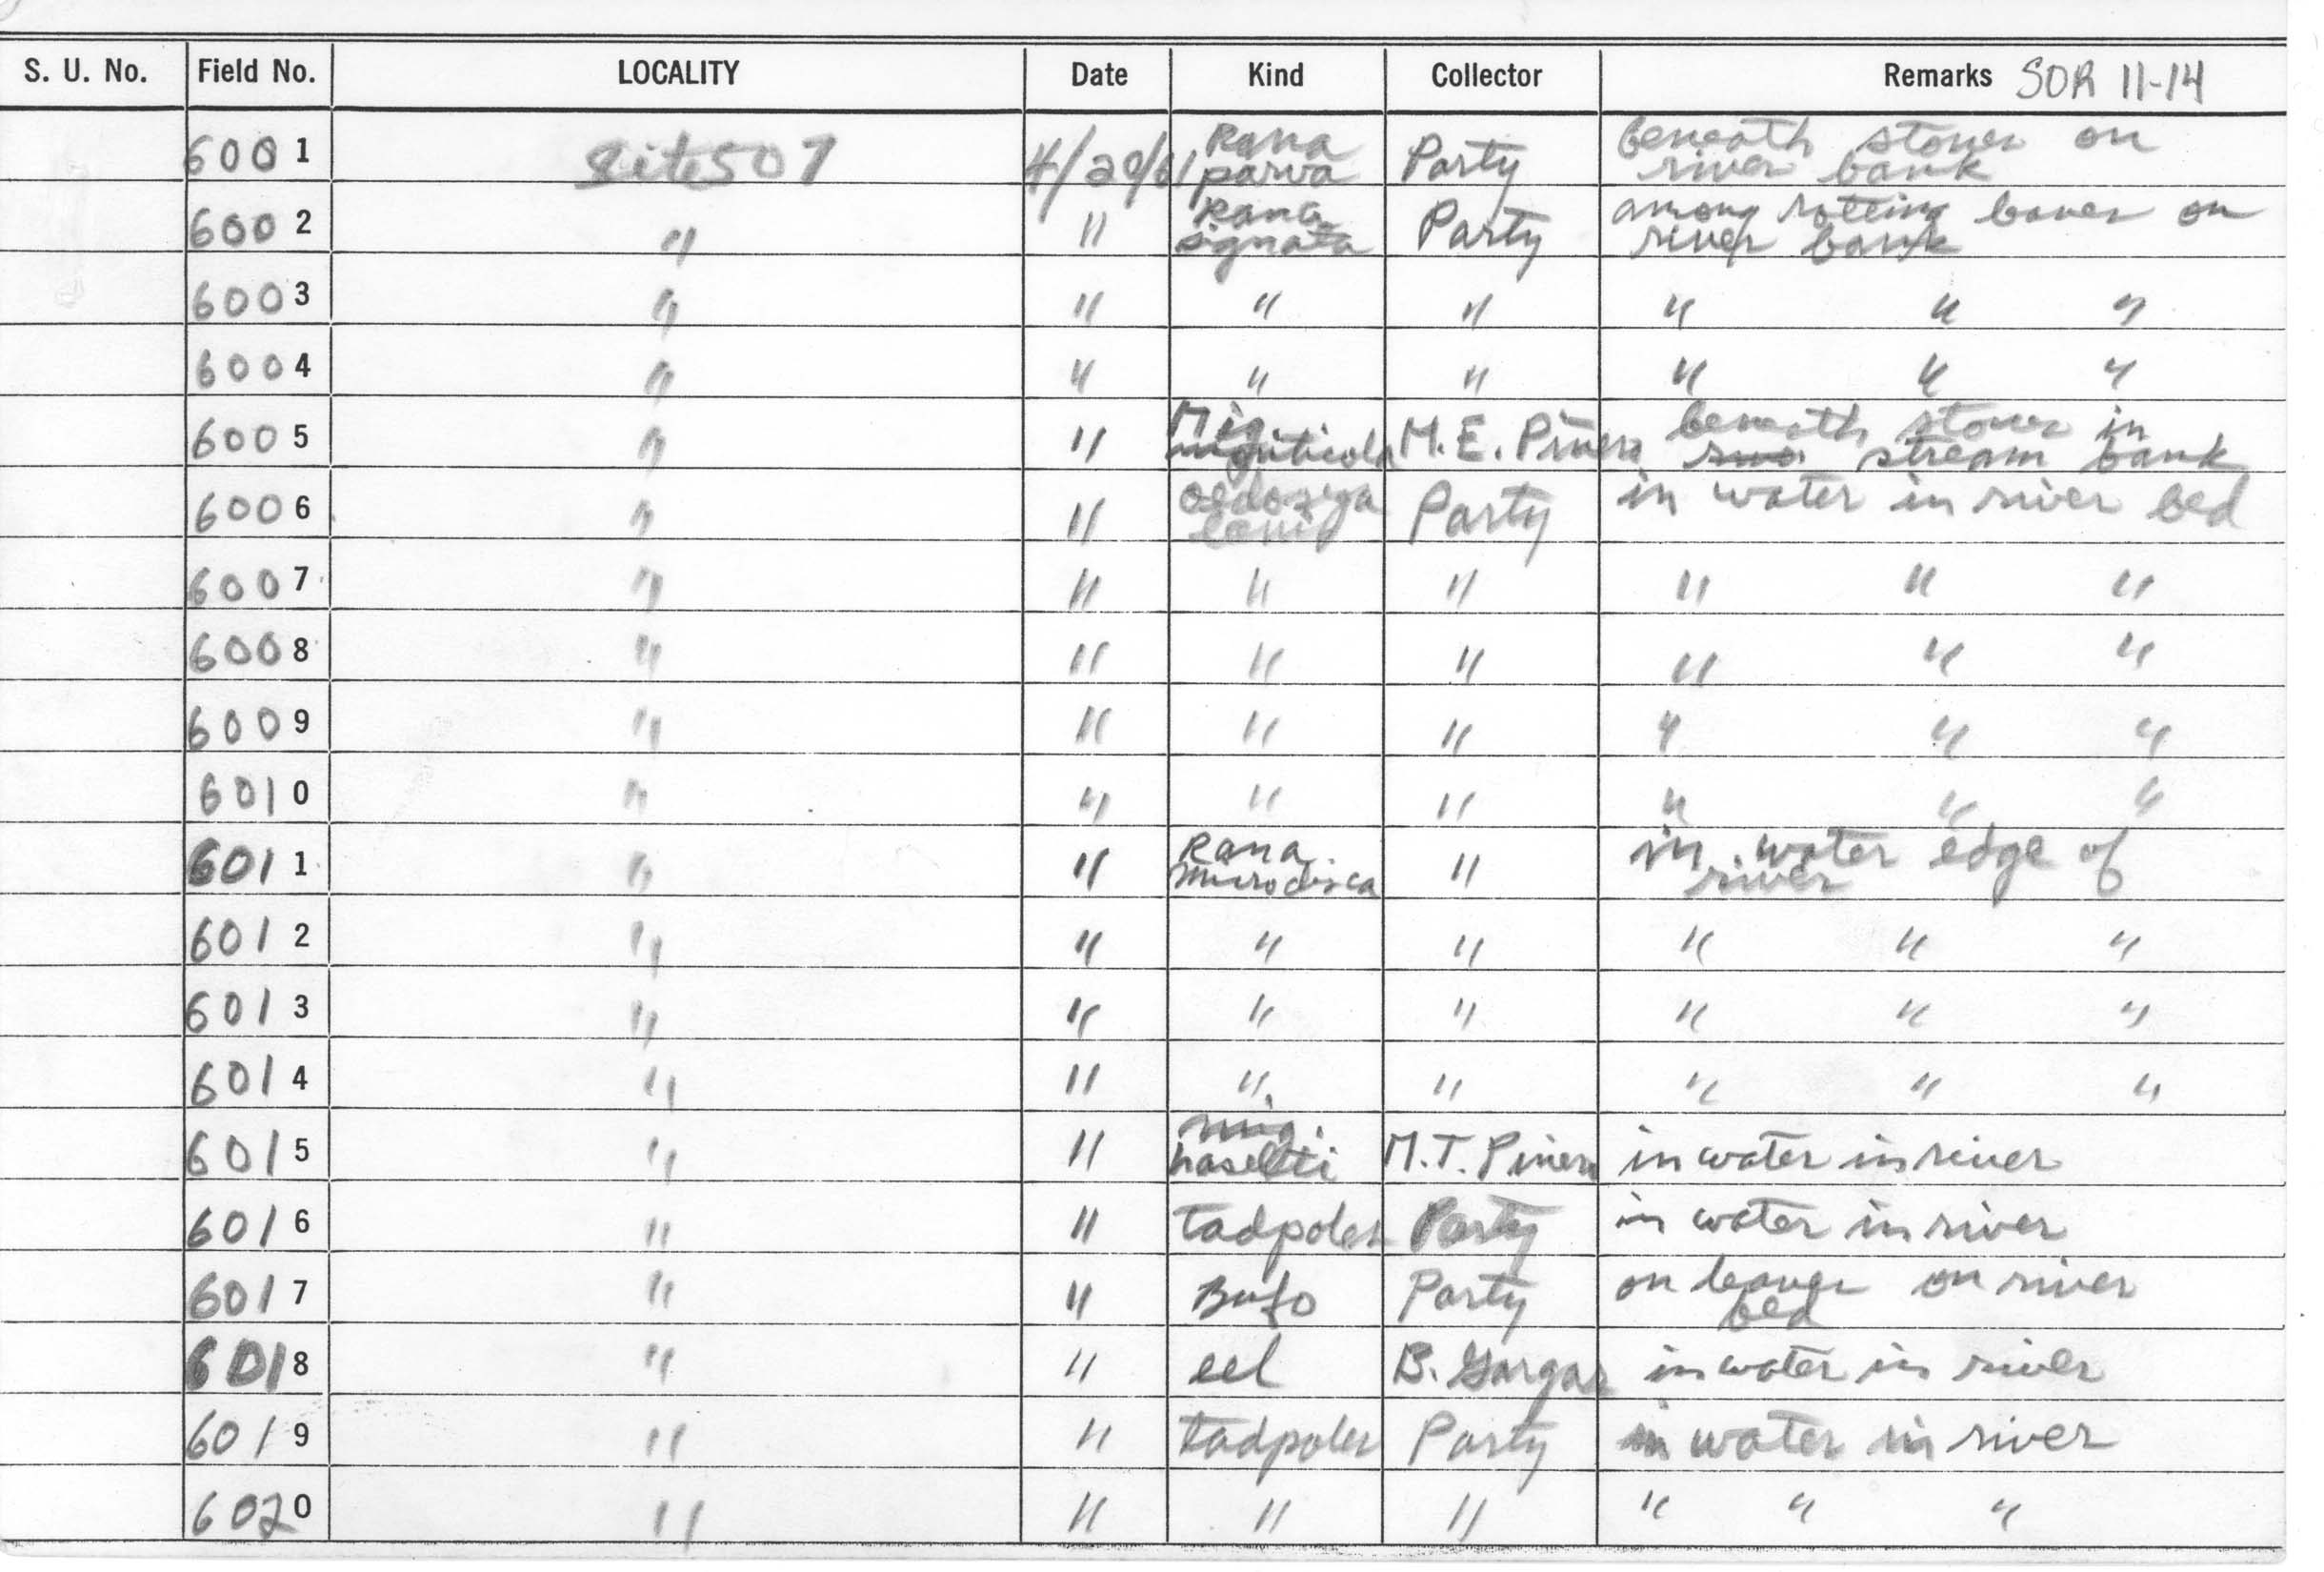 S. U. No. Field No. LOCALITY Date Kind Collector Remarks SOR 11-14
6001 Site 507 4/20/61 Rana parva Party beneath stones on river bank
6002 " " Rana signata Party among rotting leaves on river bank
6003 " " " " " " "
6004 " " " " " " "
6005 " " Mig. M. E. Pinero beneath stones in stream bank
6006 " " Party in water in river bed
6007 " " " " " " "
6008 " " " " " " "
6009 " " " " " " "
6010 " " " " " " "
6011 " " Rana microdisca " in water edge of river
6012 " " " " " " "
6013 " " " " " " "
6014 " " " " " " "
6015 " " hasellti M. T. Pinero in water in river
6016 " " tadpoles Party in water in river
6017 " " Bufo Party on leaves on river bed
6018 " " eel B. Gargar in water in river
6019 " " tadpoles Party in water in river
6020 " " " " " " "